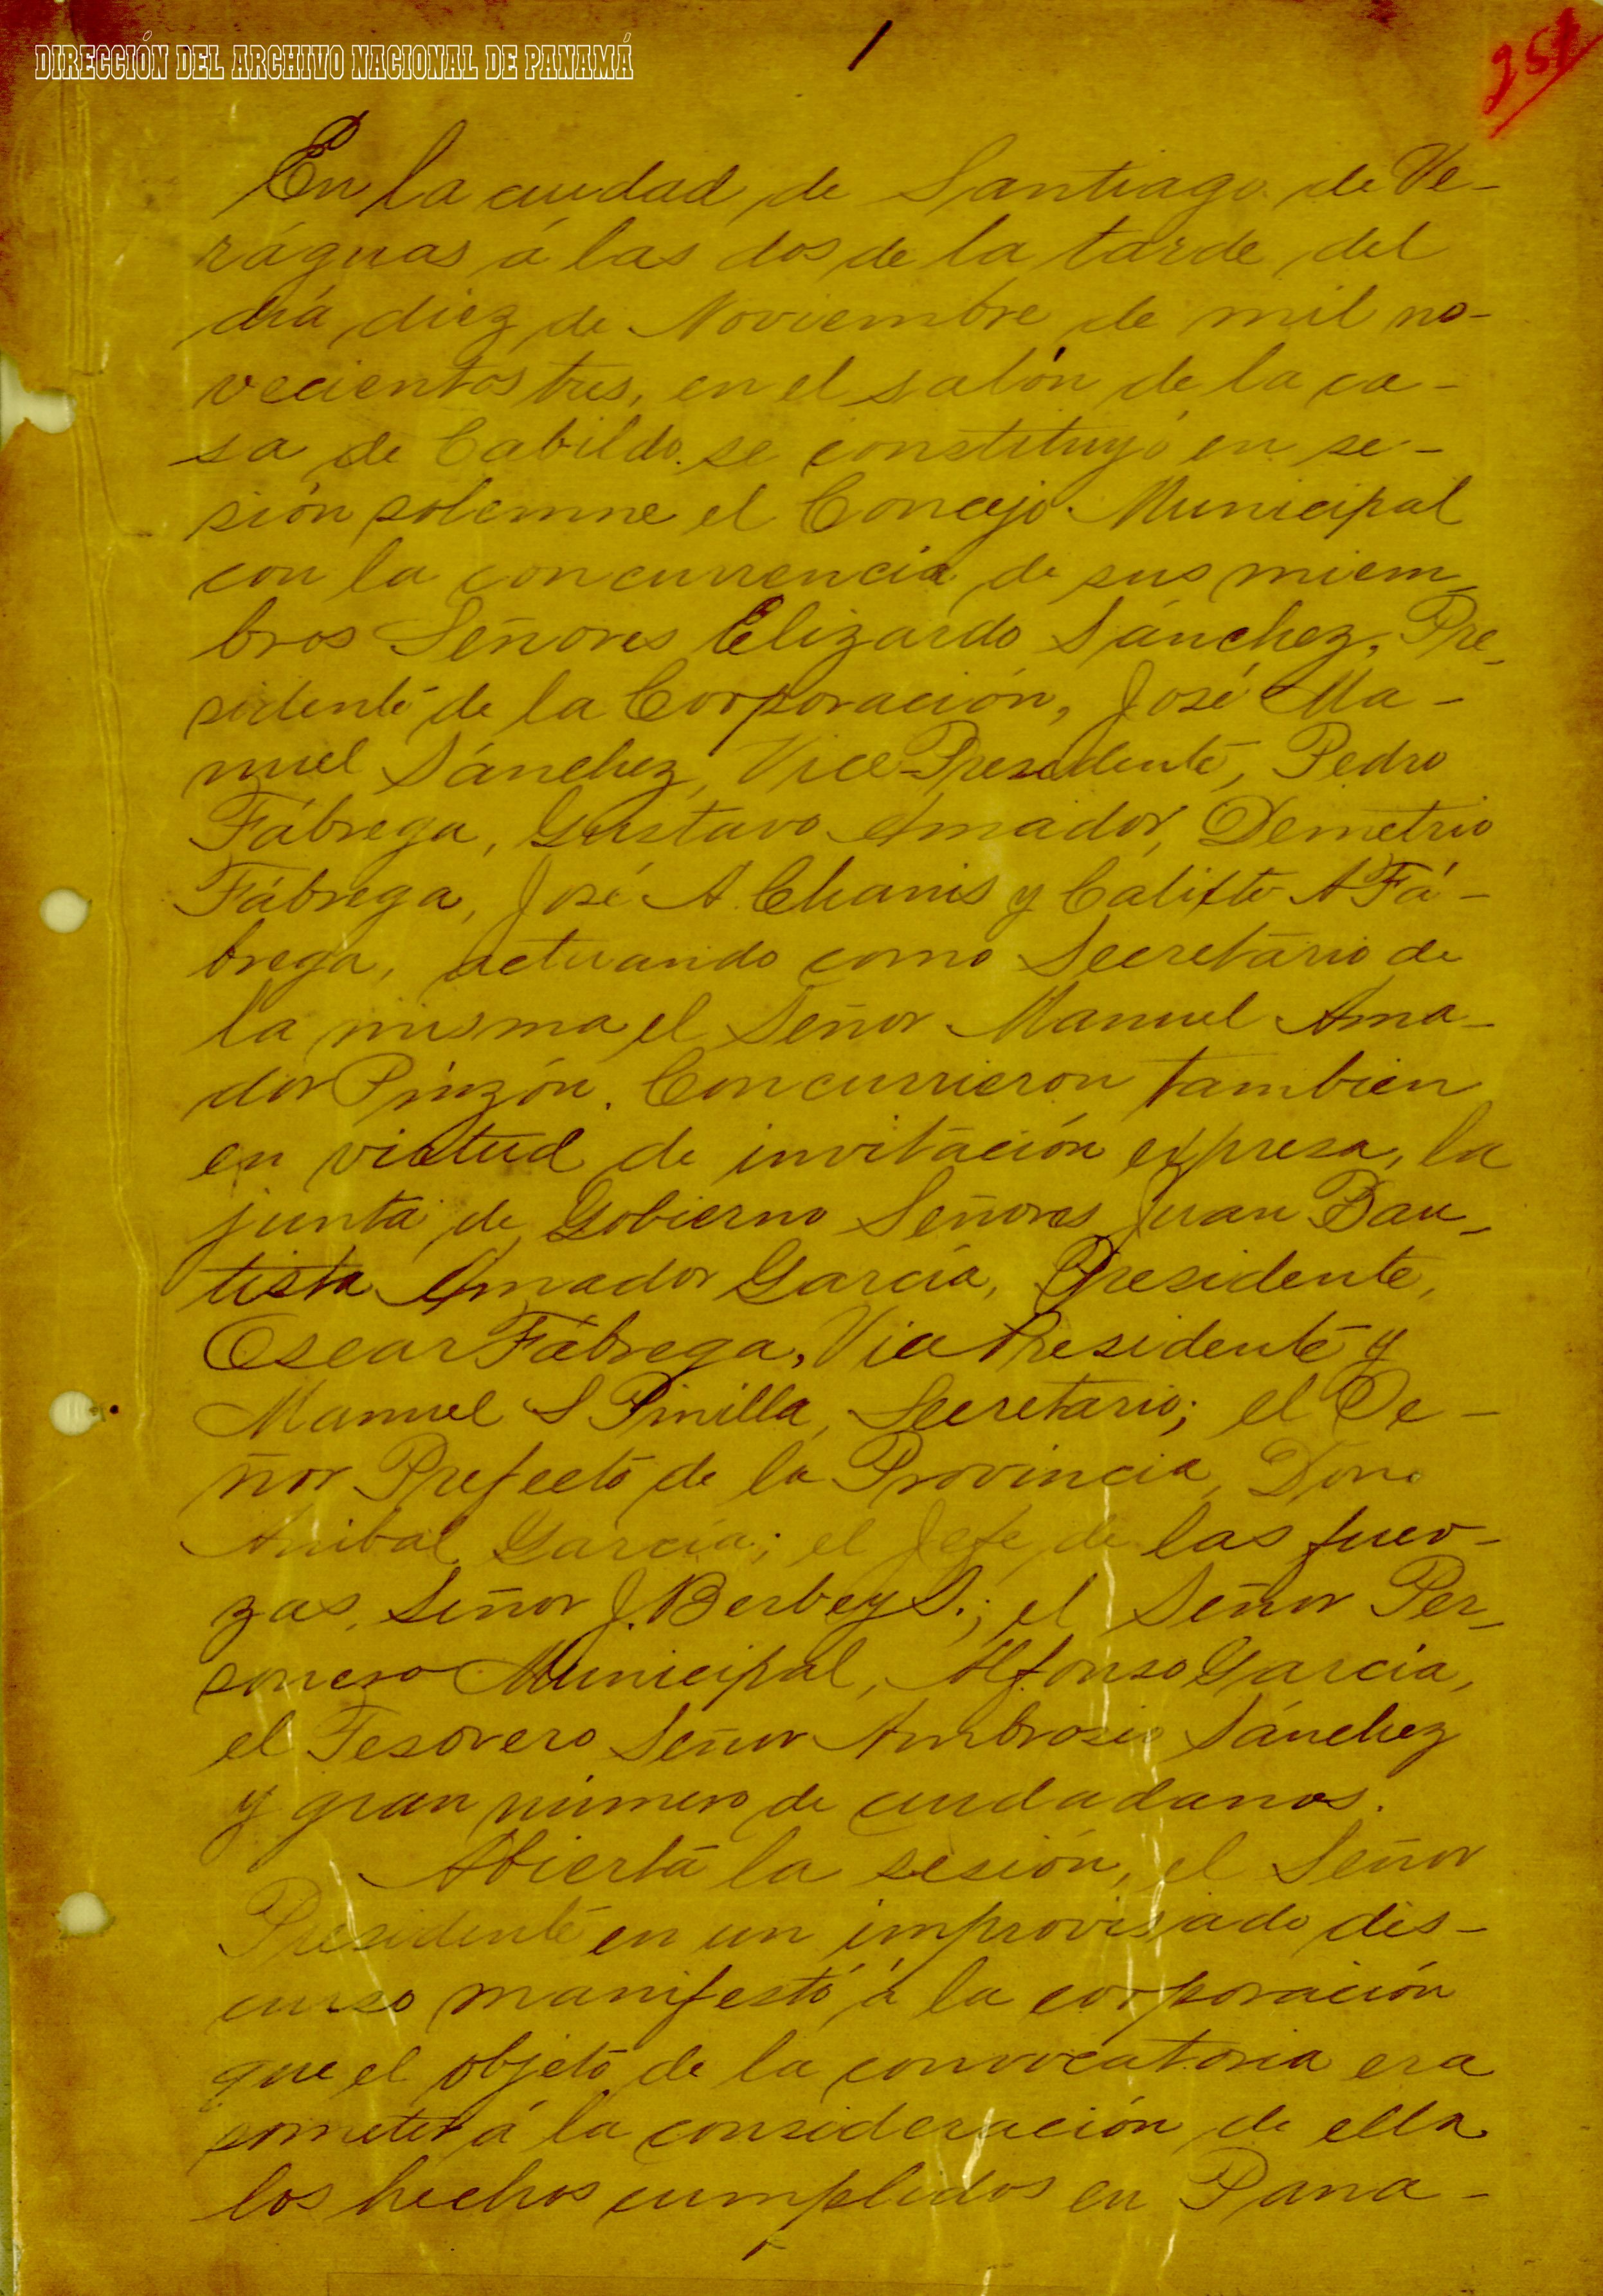 DIRECCIÓN DEL ARCHIVO NACIONAL DE PANAMÁ
1
En la ciudad de Santiago de Ve-
ráguas á las dos de la tarde del
día diez de Noviembre de mil no-
vecientos tres, en el salón de la ca-
sa de Cabildo se constituyó en se-
sión solemne el Concejo Municipal
con la concurrencia de sus miem-
bros Señores Elizardo Sánchez, Pre-
sidente de la Corporación, José Ma-
nuel Sánchez, Vice-Presidente, Pedro
Fábrega, Gustavo Amador, Demetrio
Fábrega, José A. Chanis y Calixto A Fá-
brega, actuando como Secretario de
la misma el Señor Manuel Ama-
dor Pinzón. Concurrieron tambien
en virtud de invitación expresa, la
junta de Gobierno Señores Juan Bau-
tista Amador García, Presidente,
Oscar Fábrega, Vice Presidente y
Manuel S Pinilla, Secretario; el Se-
ñor Prefecto de la Provincia, Don
Anibal García; el Jefe de las fuer-
zas, Señor J. Berbey S.; el Señor Per-
sonero Municipal, Alfonso García,
el Tesorero Señor Ambrosio Sánchez
y gran número de ciudadanos.
Abierta la sesión, el Señor
Presidente en un improvisado dis-
curso manifestó á la corporación
que el objeto de la convocatoria era
someter á la consideración de ella
los hechos cumplidos en Pana-